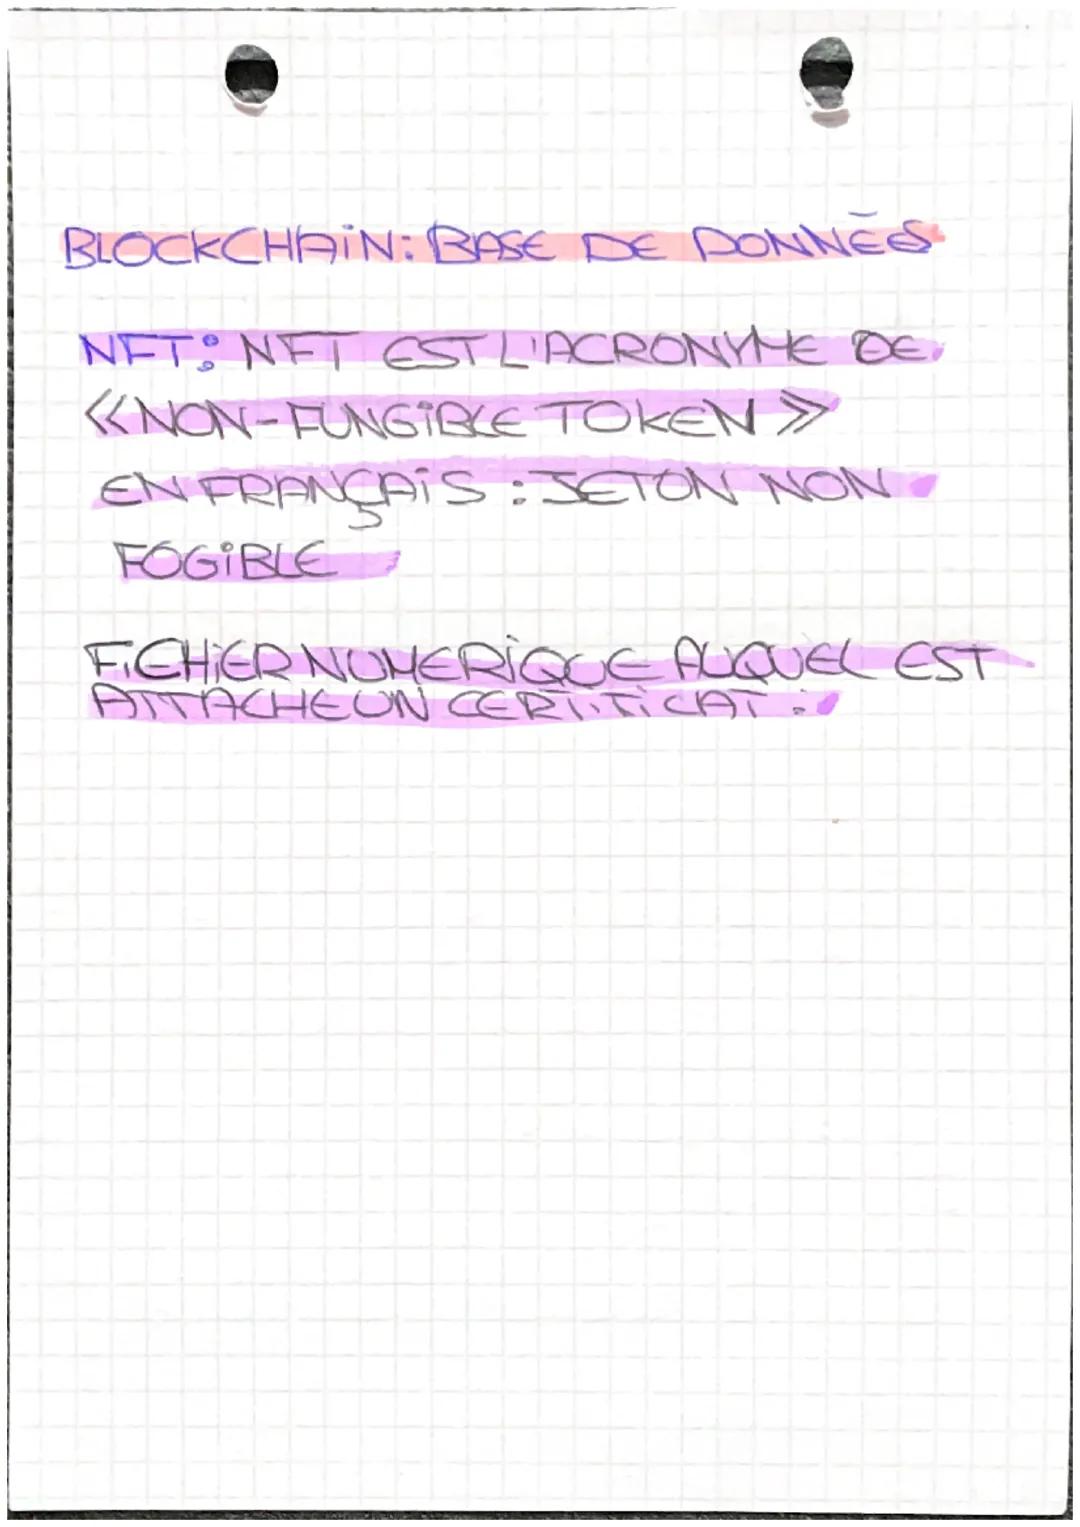 BLOCKCHAIN: BASE DE DONNÉES
NFT: NFT EST L'ACRONYME DE
«NON-FUNGIBLE TOKEN»
EN FRANÇAIS : JETON NON
FOGIBLE
FICHIER NUMERIQUE AUQUEL EST
ATTACHE UN CERTIFICAT.